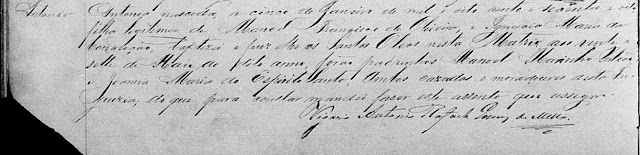 Antonio Antonio nascido, a cinco de Janeiro de mil e oito centos e sessenta e oito
filho legitimo de Manoel Francisco de Oliveira, e Ignacia Maria da
Conceição, baptizei e puz lhe os Santos Oleos nesta Matriz aos vinte e
sette de do dito anno, forão padrinhos Manoel Marinho
e Joanna Maria do Espirito Santo, ambos cazados e moradores desta fre
guezia, do que para constar mandei fazer este assento que assigno.
Vigario Antonio Rafael Gomes de Mello